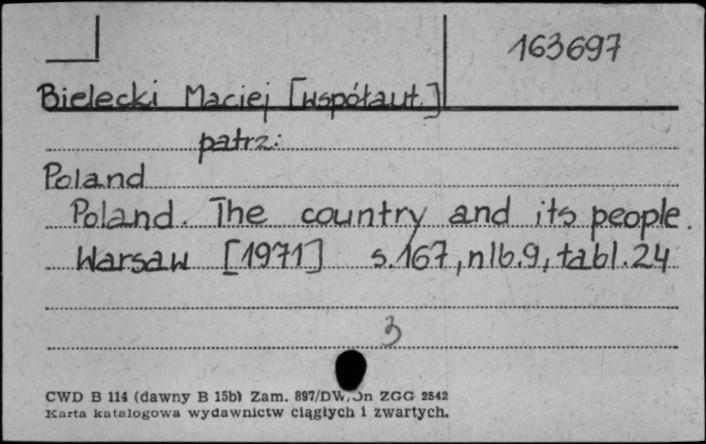 163697
Bielecki Maciej [współaut.]
patrz:
Poland
Poland. The country and its people.
Warsaw [1971] s.167, nlb.9, tabl.24
3
CWD B 114 (dawny B 15b) Zam. 897/DW/Jn ZGG 2542
Karta katalogowa wydawnictw ciągłych i zwartych.